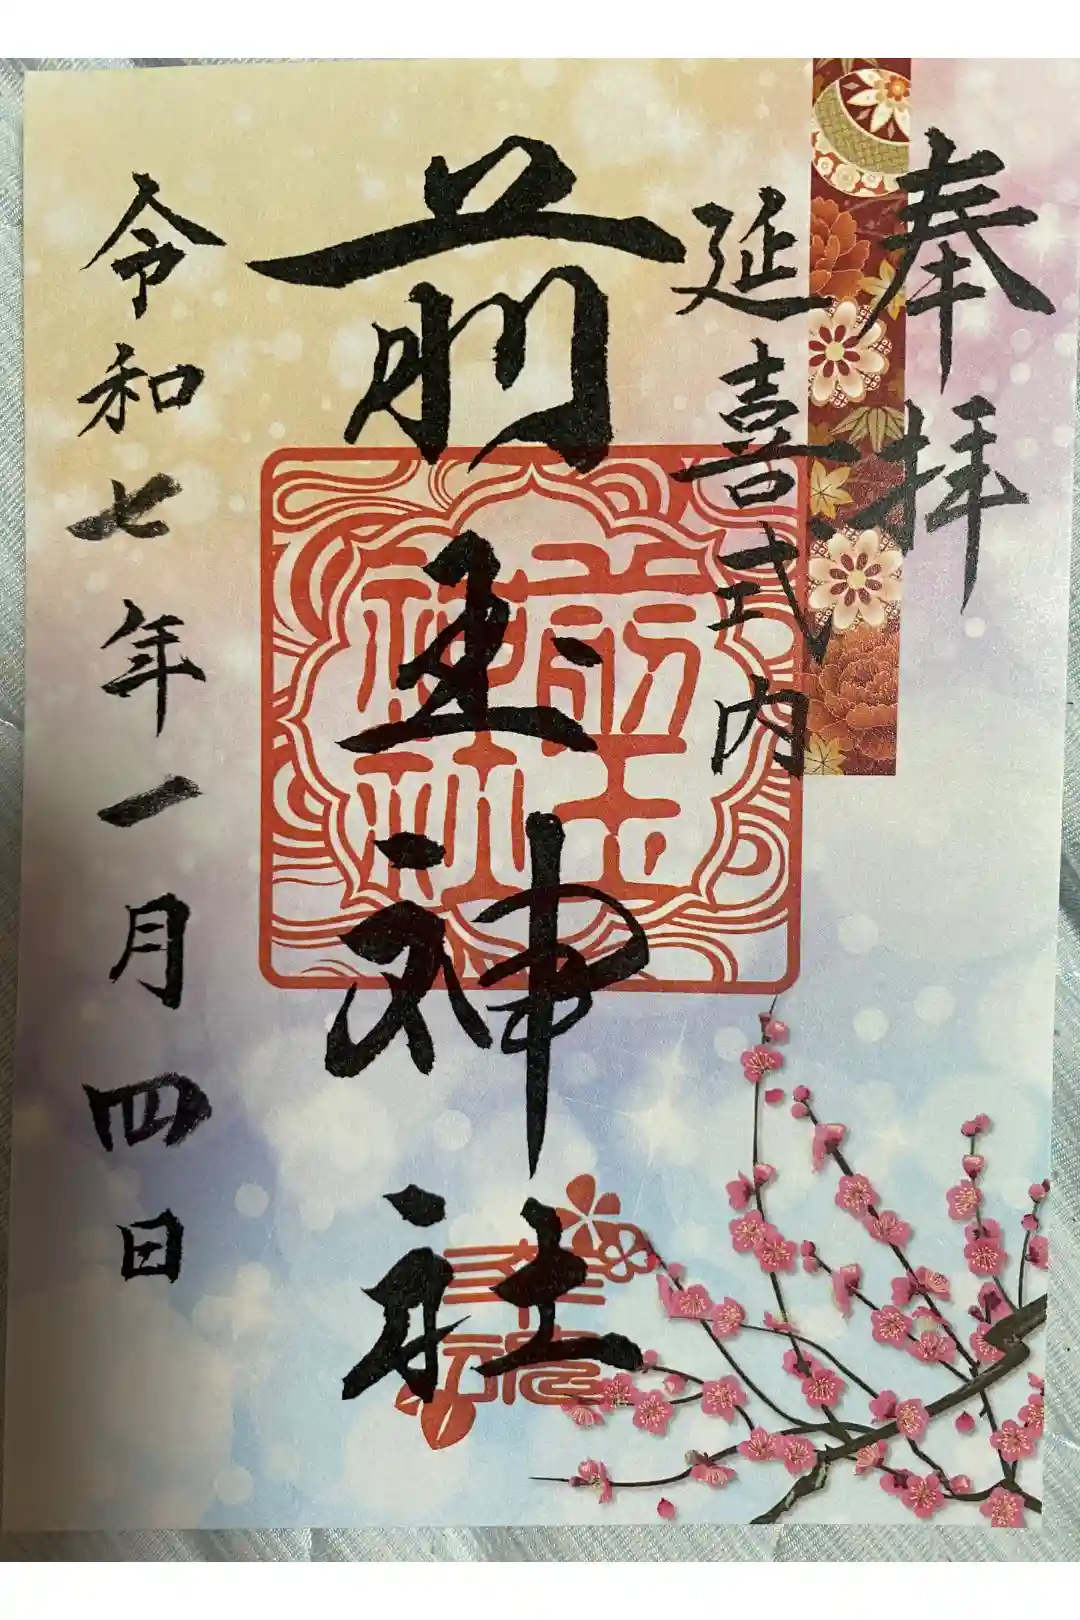 奉拝
延喜式内
前玉神社
前玉神社
令和七年一月四日